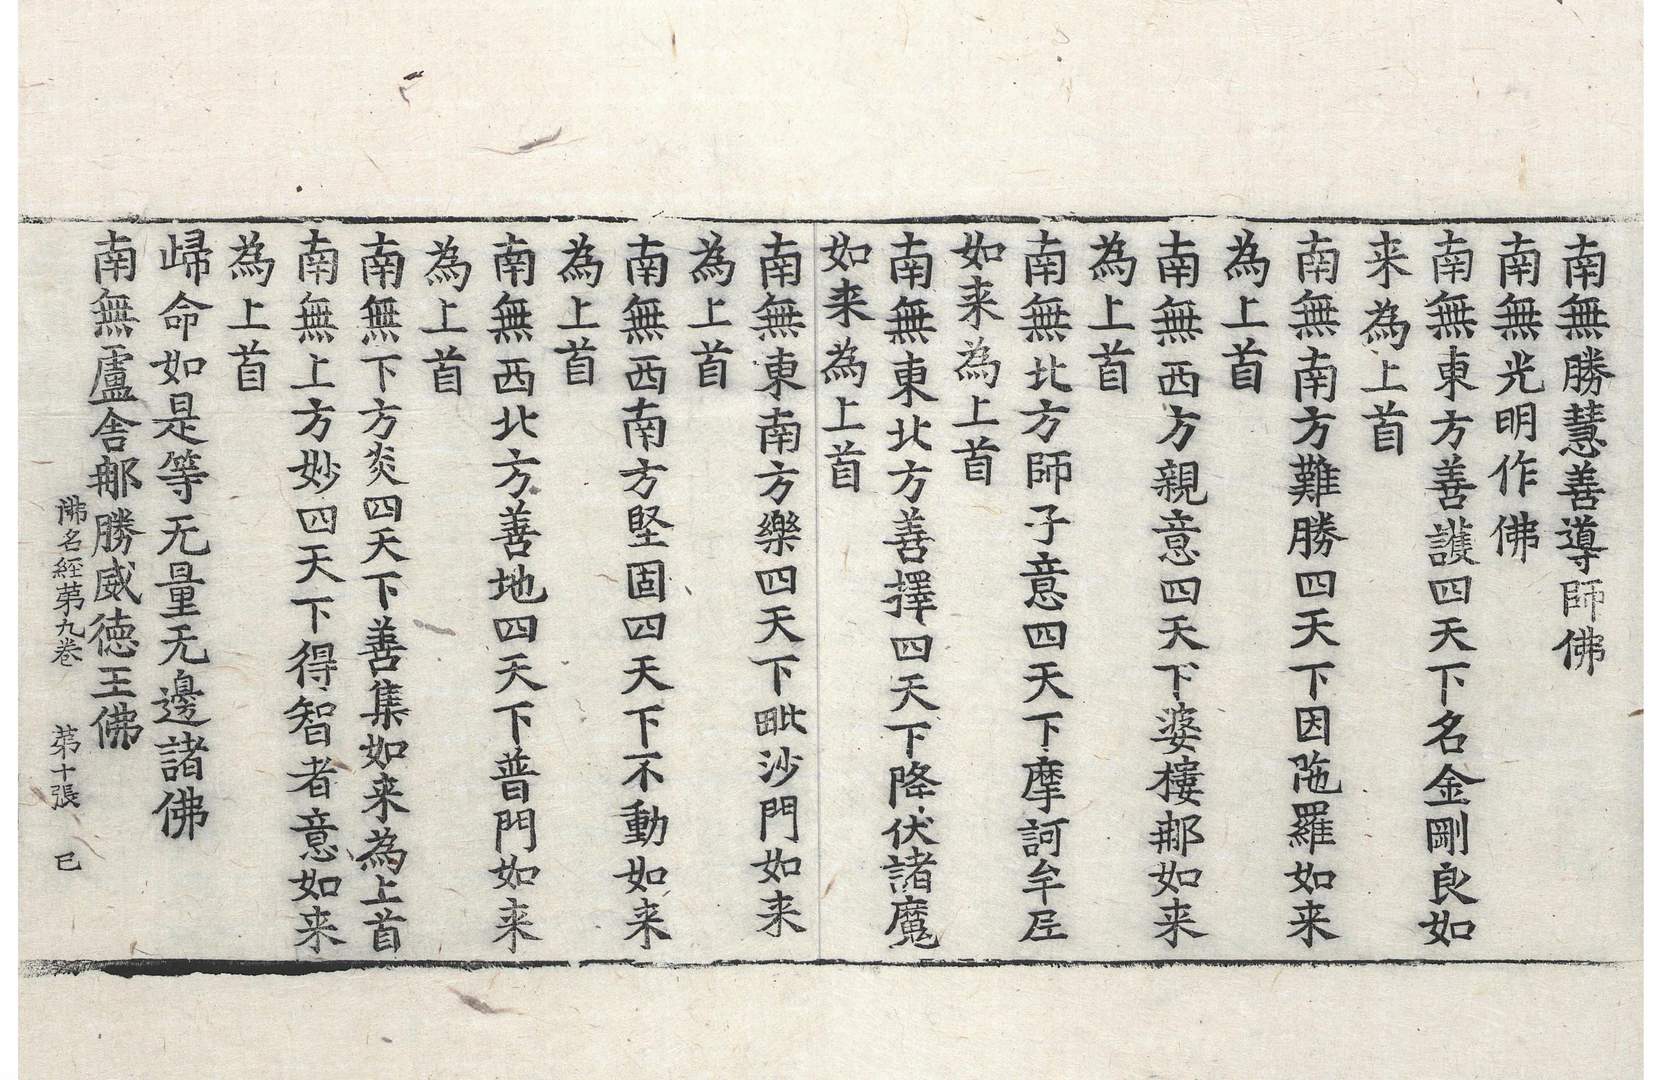 南無勝慧善導師佛
南無光明作佛
南無東方善護四天下名金剛良如
来為上首
南無南方難勝四天下因陁羅如来
為上首
南無西方親意四天下婆樓那如来
為上首
南無北方師子意四天下摩訶牟𡰱
如来為上首
南無東北方善擇四天下降伏諸魔
如来為上首
南無東南方樂四天下毗沙門如来
為上首
南無西南方堅固四天下不動如来
為上首
南無西北方善地四天下普門如来
為上首
南無下方炎四天下善集如来為上首
南無上方妙四天下得智者意如来
為上首
歸命如是等无量无邊諸佛
南無盧舍那勝威德王佛
佛名經苐九卷 苐十張 巳